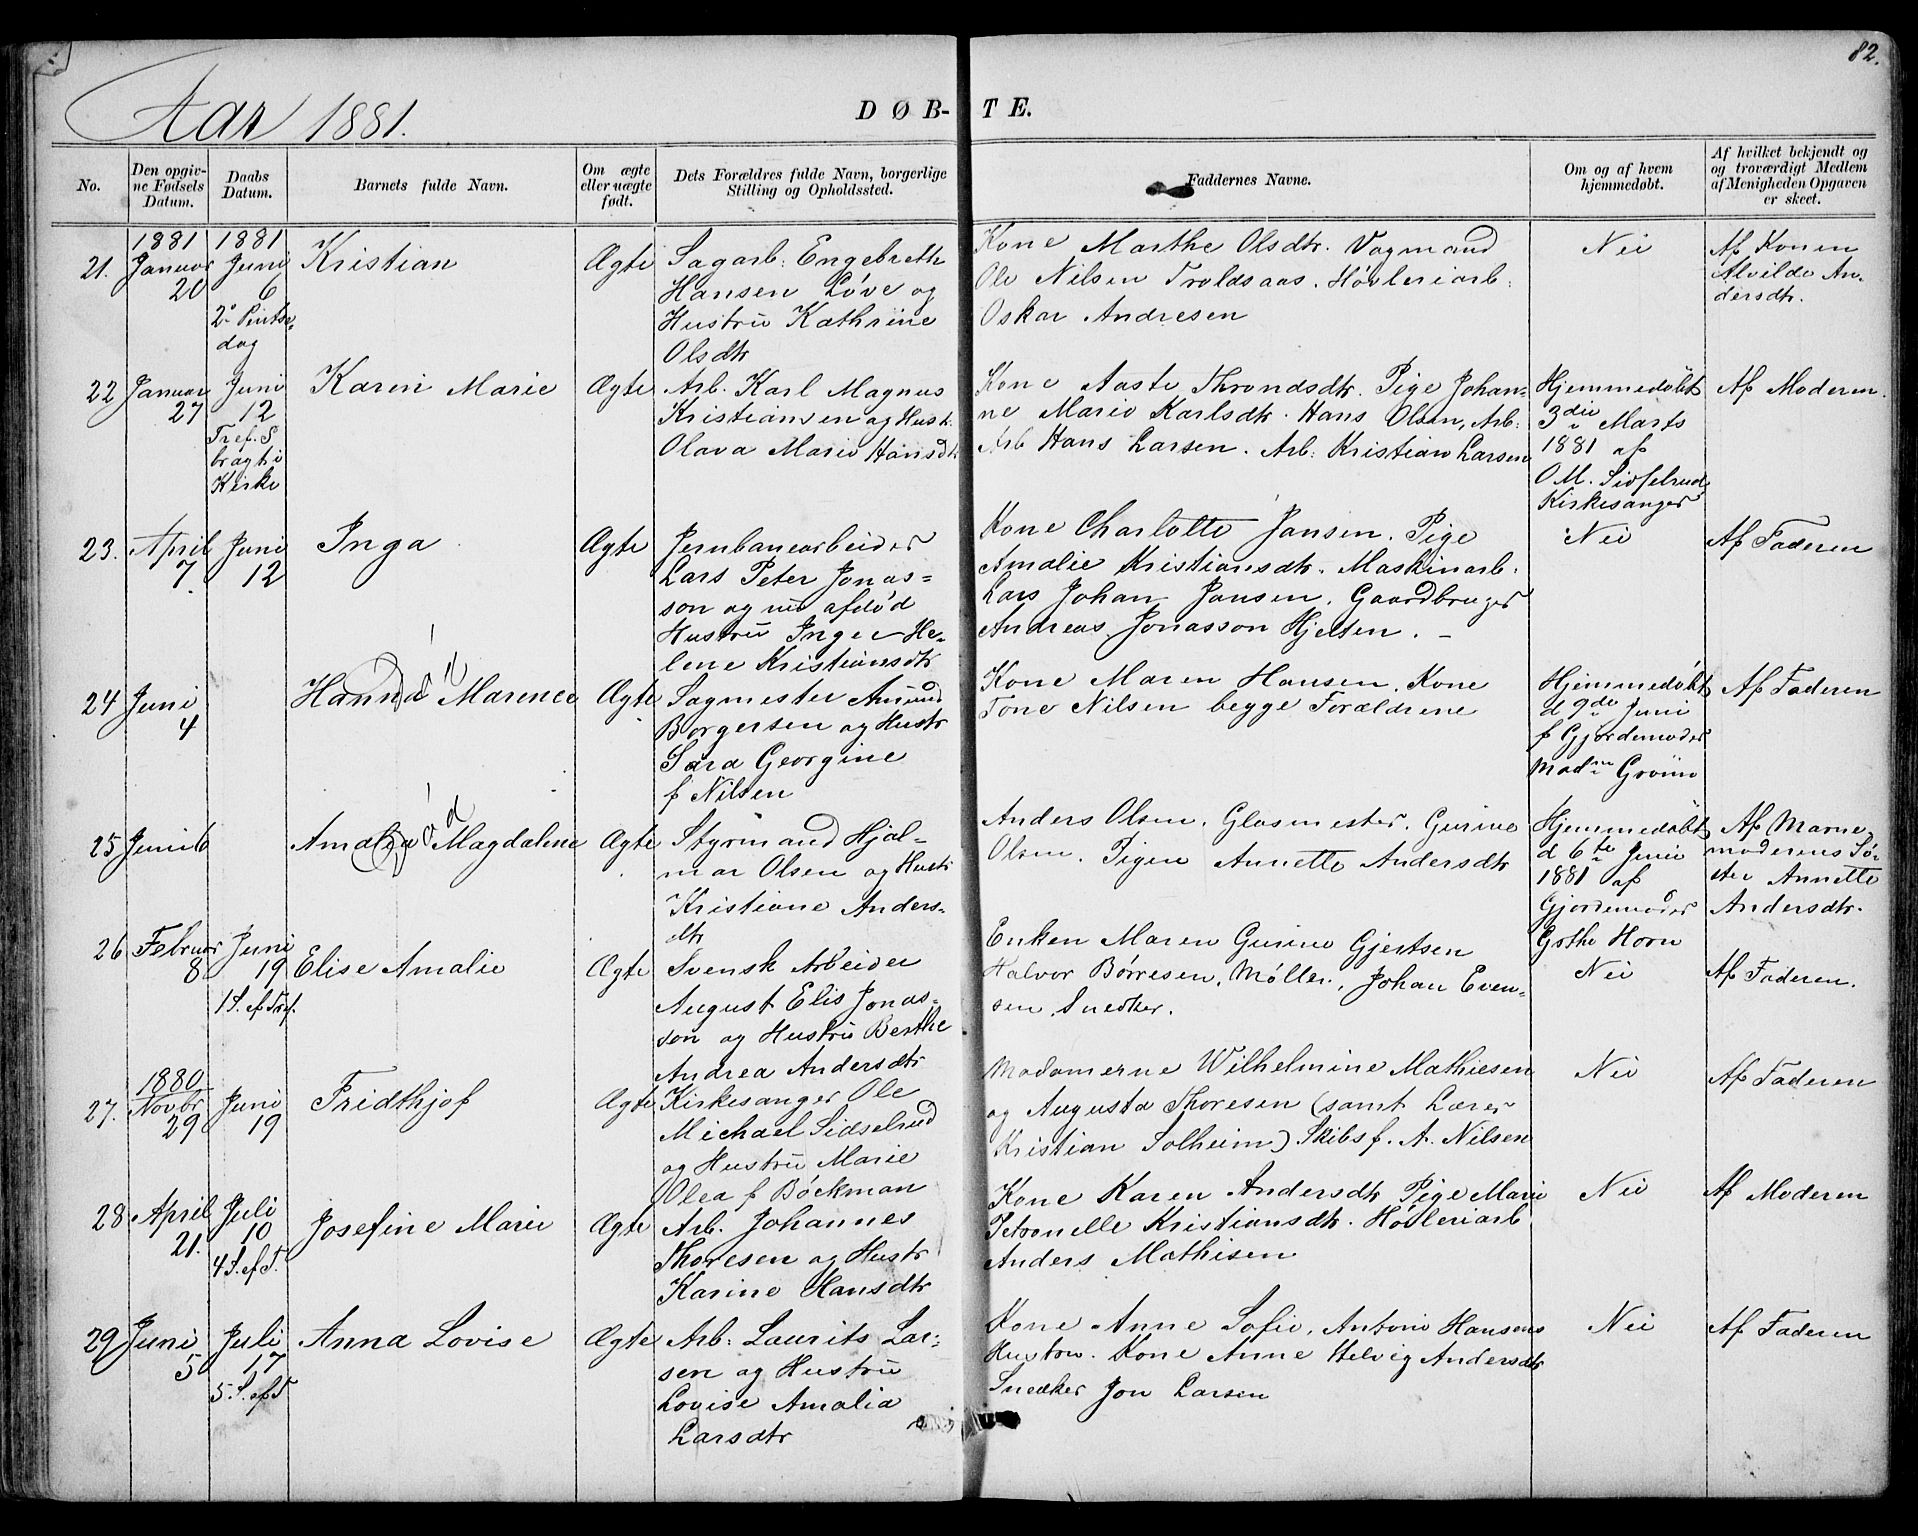 82.
Aar 1881.
DØB-TE.
No.
Den opgivne Fødsels Datum.
Daabs Datum.
Barnets fulde Navn.
Om ægte eller uægte født.
Dets Forældres fulde Navn, borgerlige Stilling og Opholdssted.
Faddernes Navne.
Om og af hvem hjemmedøbt.
Af hvilket bekjendt og og troværdigt Medlem af Menigheden Opgaven er skeet.
21.
1881
Januar
20
1881
Juni
6
2. Pintse-
dag
Kristian
Ægte
Sagarb. Engebreth
Hansen Løve og
Hustru Kathrine
Olsdtr
Kone Marthe Olsdtr. Vogmand
Ole Nilsen Troldsaas. Høvleriarb.
Oskar Andresen
Nei
Af Konen
Alvilde An-
dersdtr.
22
Januar
27
Juni
12
Tref. S
bragt i
Kirke
Karin Marie
Ægte
Arb. Karl Magnus
Kristiansen og Hustr.
Olava Marie Hansdtr
Kone Aaste Throndsdtr. Pige Johan-
ne Marie Karlsdtr. Hans Olsen, Arb.
Arb Hans Larsen. Arb: Kristian Larsen
Hjemmedøbt
3die Marts
1881 af
O M. Sidselrud
Kirkesanger
Af Moderen.
23.
April
7.
Juni
12
Inga
Ægte
Jernbanearbeider
Lars Peter Jonas-
son og nu afdød
Hustru Inger He-
lene Kristiansdtr
Kone Charlotte Jansen. Pige
Amalie Kristiansdtr. Maskinarb.
Lars Johan Jansen. Gaardbruger
Andreas Jonasson Hjelten. -
Nei
Af Faderen
24
Juni
4
Hanna Marence
Død
Ægte
Sagmester Amund
Borgersen og Hustr
Sara Georgine
f Nilsen
Kone Maren Hansen. Kone
Tone Nilsen begge Forældrene
Hjemmedøbt
d 9de Juni
f Gjordemoder
Madm
Af Faderen
25
Juni 6
Amalea Magdalene
Død
Ægte
Styrmand Hjal-
mar Olsen og Hustr
Kristiane Anders-
dtr
Anders Olsen, Glasmester. Gurine
Olsen. Pigen Annette Andersdtr
Hjemmedøbt
d 6te Juni
1881 af
Gjordemoder
Gothe Horn
Af Barne-
moderens Sø-
ster Annette
Andersdtr.
26
Februar
8
Juni
19
1 S. ef Tref.
Elise Amalie
Ægte
Svensk Arbeider
August Elis Jonas-
son og Hustru Berthe
Andrea Andersdtr
Enken Maren Gurine Gjertsen
Halvor Børresen, Møller, Johan Even-
sen, Snedker.
Nei
Af Faderen.
27.
1880
Novbr
29
Juni
19
Fridthjof
Ægte
Kirkesanger Ole
Michael Sidselrud
og Hustru Marie
Olea f Bøckman
Madamerne Wilhelmine Mathiesen
og Augusta Thoresen (samt Lærer
Kristian Solheim) Skibsf. A. Nilsen
Nei
Af Faderen
28
April
21.
Juli
10
4 S. ef T.
Josefine Marie
Ægte
Arb. Johannes
Thoresen og Hustr
Karine Hansdtr
Kone Karen Andersdtr Pige Marie
Petronelle Kristiansdtr. Høvleriarb
Anders Mathisen
Nei
Af Moderen
29
Juni
5
Juli
17
5 S. ef T
Anna Lovise
Ægte
Arb: Laurits Lar-
sen og Hustru
Lovise Amalia
Larsdtr
Kone Anne Sofie, Antoni Hansens
Hustru. Kone Anne Helvig Andersdtr
Snedker Jon Larsen
Nei
Af Faderen